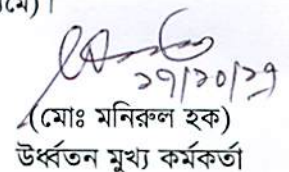 মে)।
২৭/১০/২১
(মোঃ মনিরুল হক)
উর্ধ্বতন মুখ্য কর্মকর্তা